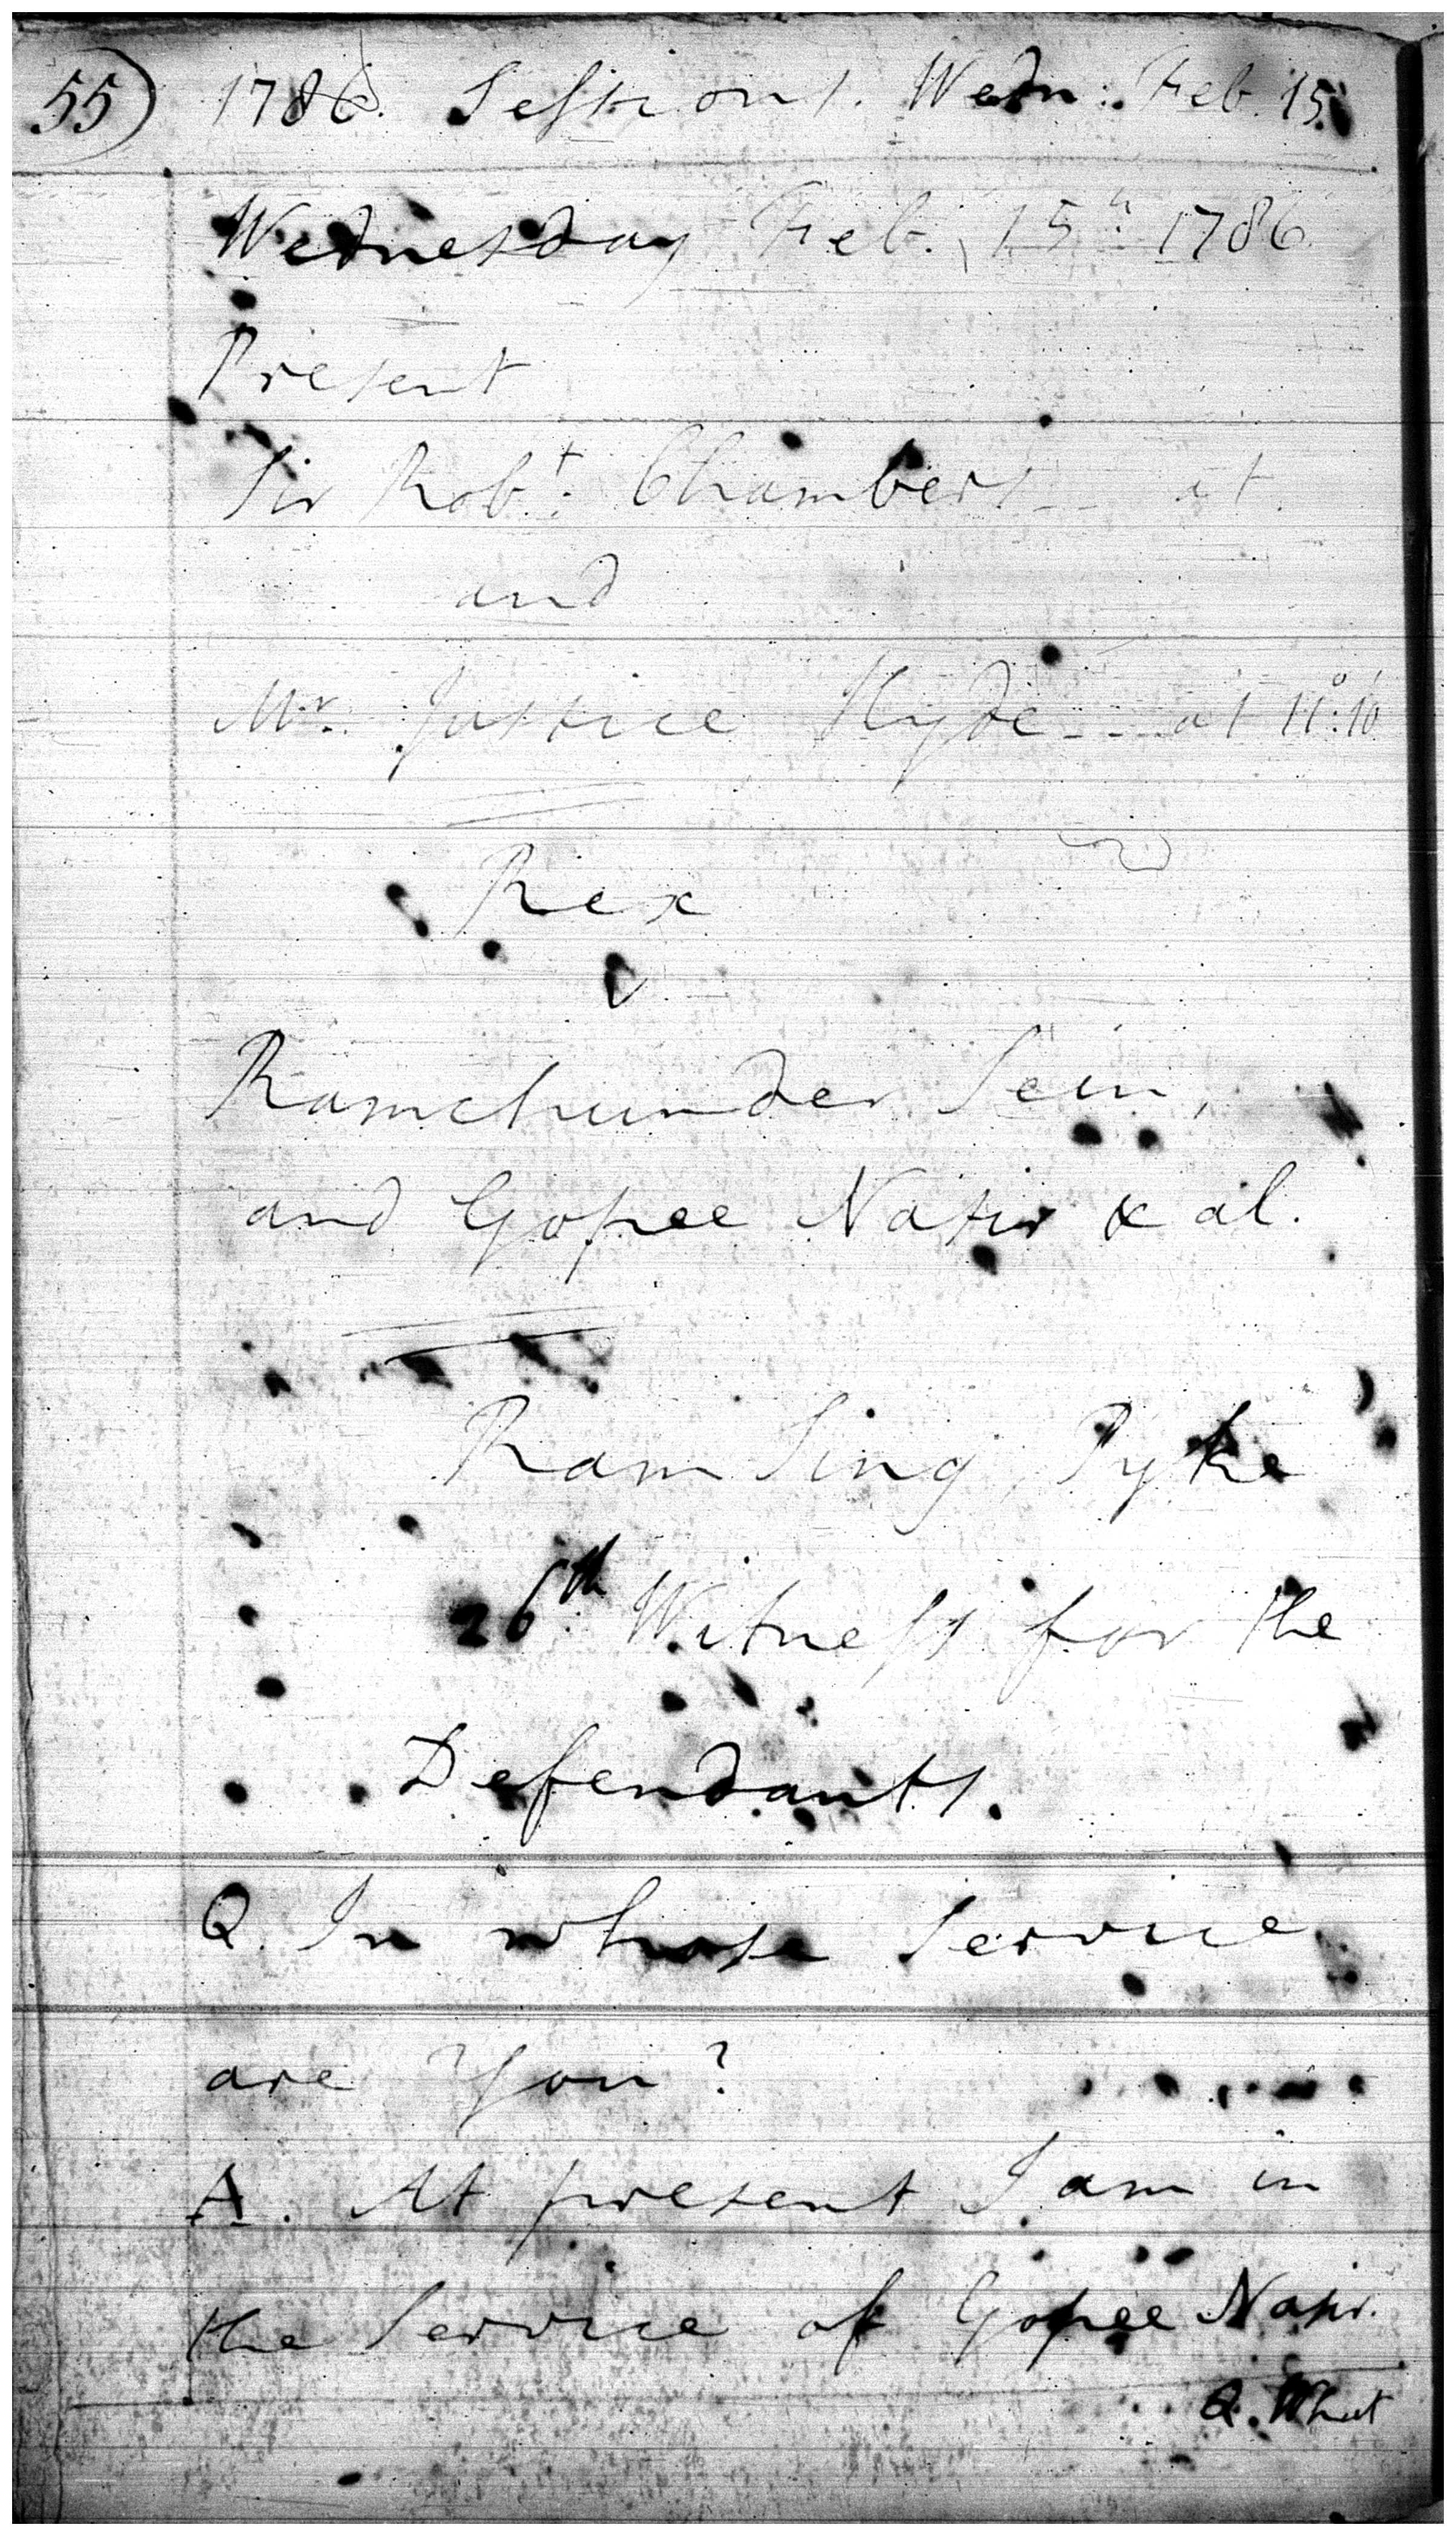 55) 1786. Sessions. Wedn: Feb. 15.
Wednesday Feb. 15.th 1786.
Present
Sir Rob.t Chambers - - at
and
Mr. Justice Hyde - - - at 11°:10'
Rex
v.
Ramchunder Sein,
and Gopee Nazir & al.
Ram Sing, Pyke
26th. Witness for the
Defendants.
Q. In whose Service
are You?
A. At present I am in
the Service of Gopee Nazir.
Q. What